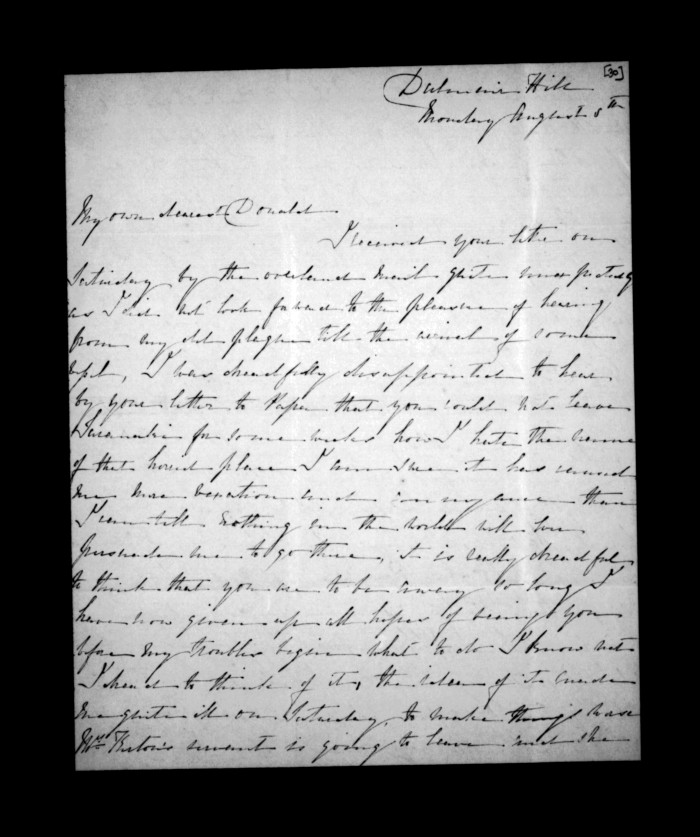 [30]
Dalmain Hill
Monday August 8th
My own dearest Donald
I received your letter on
Saturday by the overland mail quite unexpectedly
as I did not look forward to the pleasure of hearing
from my old plague till the arrival of some
vessel, I was dreadfully disappointed to hear
by your letter to Papa that you could not leave
Taranaki for some weeks how I hate the name
of that horrid place I am sure it has caused
me more vexation and annoyance than
I can tell nothing in the world will ever
persuade me to go there, it is really dreadful
to think that you are to be away so long I
have now given up all hopes of seeing you
before my troubles begin what to do I know not
I dread to think of it, the idea of it made
me quite ill on Saturday to make things worse
Mrs servant is going to leave and she